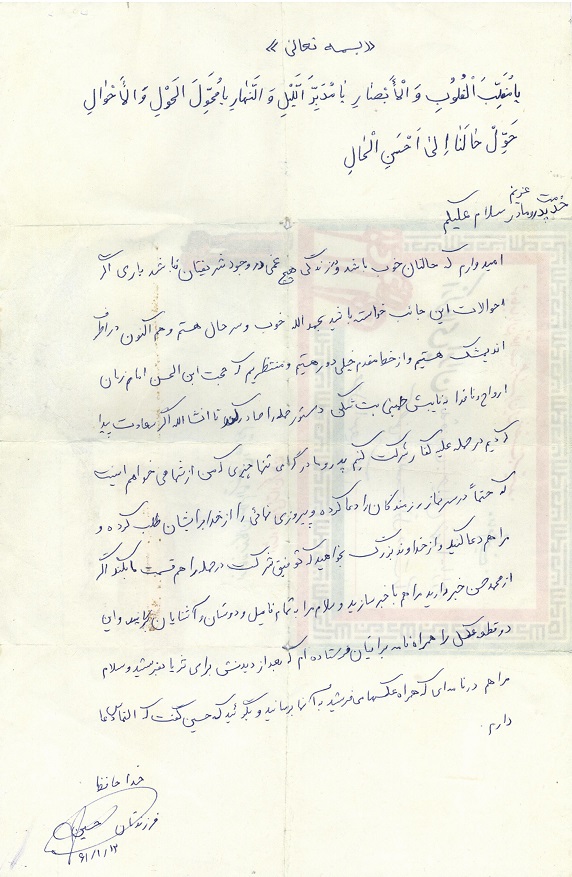 «بسمه تعالی»
یا مُقَلِّبَ الْقُلُوبِ وَ الْأَبْصَارِ یا مُدَبِّرَ الَّلیْلِ وَ النَّهارِ یا مُحَوِّلَ الحَوْلِ وَ الْأَحْوالِ
حَوِّلْ حالَنا إِلیٰ اَحْسَنِ الْحالِ
خدمت پدر و مادر عزیزم سلام علیکم
امیدوارم که حالتان خوب باشد و در زندگی هیچ غمی در وجود شریفتان نباشد باری اگر
احوالات این جانب خواسته باشید بحمد الله خوب و سرحال هستم و هم اکنون در اطراف
اندیشک هستیم و از خط مقدم خیلی دور هستیم و منتظریم که حجت ابن الحسن امام زمان
ارواحنا فدا و نایبش خمینی بت شکن دستور حمله را صادر کند تا انشاالله اگر سعادت پیدا
کردیم در حمله علیه کفار شرکت کنیم پدر و مادر گرامی تنها چیزی که من از شما می خواهم اینست
که حتماً در سر نماز رزمندگان را دعا کرده و پیروزی نهائی را از خدا برایشان طلب کرده و
مرا هم دعا کنید و از خداوند بزرگ بخواهید که توفیق شرکت در حمله را هم قسمت ما بکند اگر
از محمد حسن خبر دارید مرا هم با خبر سازید و سلام مرا به تمام فامیل و دوستان و آشنایان برسانید و این
دو قطعه عکس را همراه نامه برایتان فرستاده ام که بعد از دیدنش برای ثریا بفرستید و سلام
مرا هم در نامه ای که همراه عکسها می فرستید به آنها برسانید و بگوئید که حسین گفت که التماس دعا
دارم.
خدا حافظ
فرزندتان حسین
۶۱/۱/۱۲